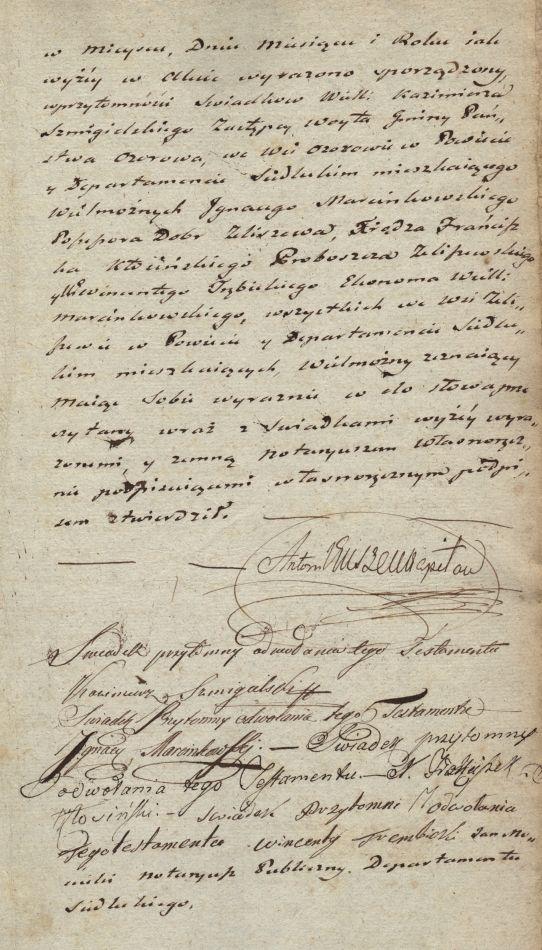 w Mieyscu, Dniu Miesiącu i Roku iak
wyżéy w Akcie wyrażono sporządzony,
w przytomności Swiadków Wielk: Kazimierza
Szmigielskiego Zastępcy Woyta Gminy Pań„
stwa Ozorowa, we Wsi Ozorowie w Powiecie
y Departamencie Siedleckim mieszkaiącego
Wielmożnych Ignacego Marcinkowskiego
Possessora Dobr Zeliszewa, Xiędza Francisz
ka Kłosińskiego Proboszcza Zeliszewskiego
y Wincentego Trębickiego Ekonoma Wielk:
Marcinkowskiego, wszystkich we Wsi Zeli„
szewie w Powiecie y Departamencie Siedle„
ckim mieszkaiących, Wielmożny zeznaiący
Maiąc sobie wyraznie co do słowa prze
czytany wraz z Swiadkami wyżéy wyra„
żonemi, y zemną Notaryuszem własnoręcz„
nie podpisuiącemi własnoręcznym podpi„
sem stwierdził.
Antoni
Swiadek przytomny odwołania tego Testamentu
Kazimierz Szmigielski
Swiadek Przytomny odwołania tego Testamentu
Ignacy Marcinkowski. — Swiadek przytomny
odwołania tego Testamentu. — X. Franciszek
Kłosiński. — Swiadek Przytomni Odwołania
tego testamentu Wincenty Trembicki Jan
Notaryusz Publiczny Departamentu
Siedleckiego.